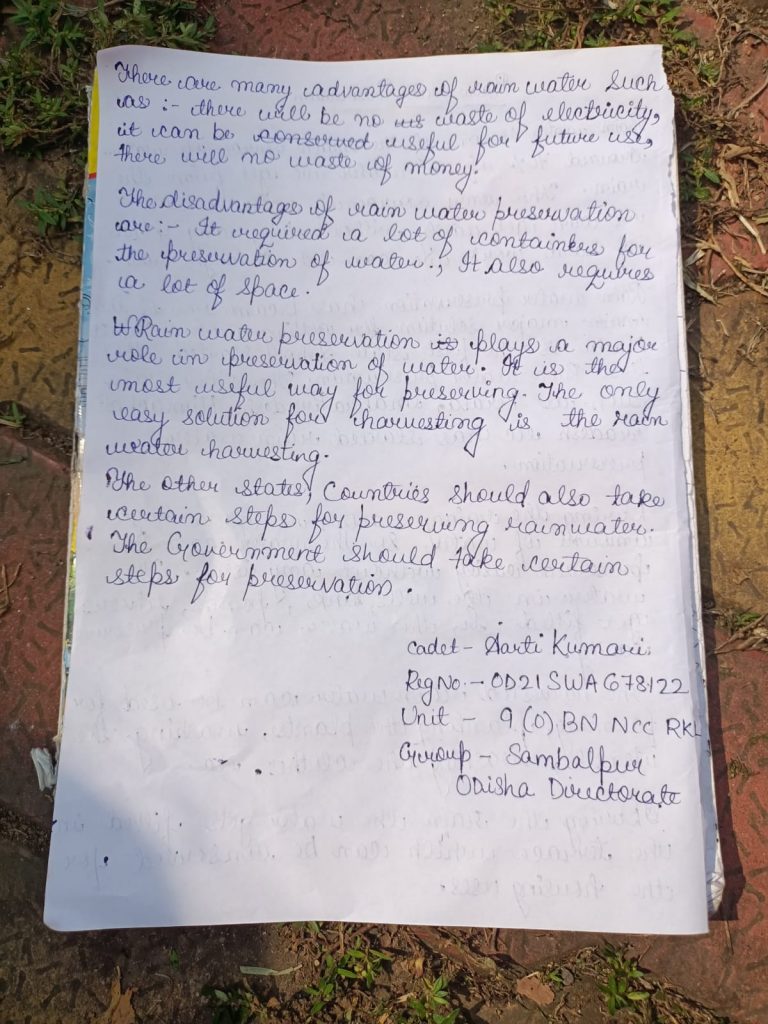 There are many advantages of rain water Such
as :- there will be no waste of electricity,
it can be conserved useful for future use,
there will no waste of money.
The disadvantages of rain water preservation
are:- It required a lot of containers for
the preservation of water., It also requires
a lot of space.
Rain water preservation is plays a major
role in preservation of water. It is the
most useful way for preserving. The only
easy solution for harvesting is the rain
water harvesting.
The other states, Countries should also take
certain steps for preserving rainwater.
The Government should take certain
steps for preservation.
Cadet - Aarti Kumari.
Reg No. - OD21SWA678122
Unit - 9 (O) BN NCC RKL
Group - Sambalpur
Odisha Directorate